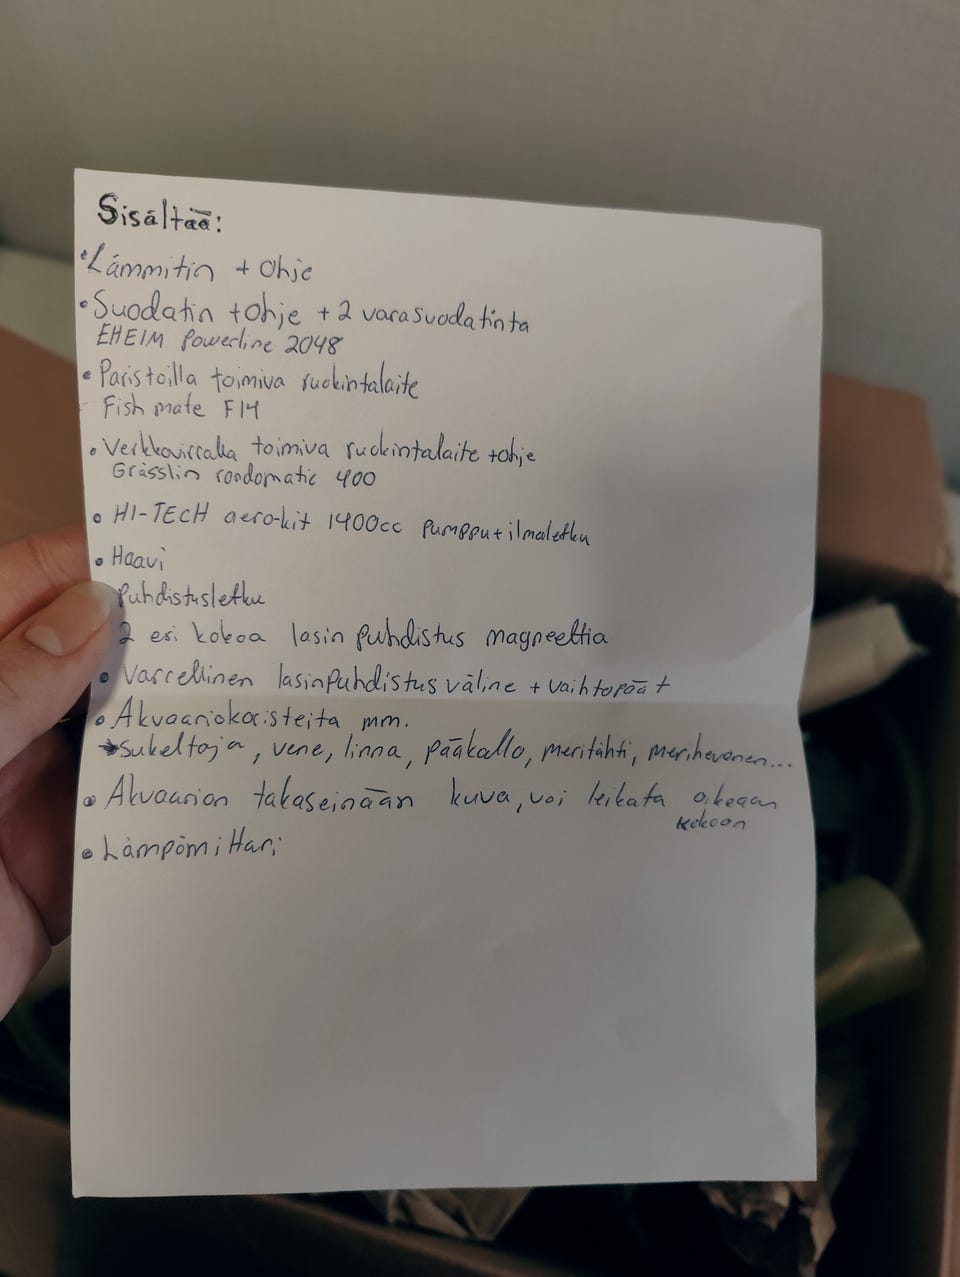 Sisältää:
• Lämmitin + ohje
• Suodatin + ohje + 2 varasuodatinta
EHEIM Powerline 2048
• Paristoilla toimiva ruokintalaite
Fish mate F14
• Verkkovirralla toimiva ruokintalaite + ohje
Grässlin rondomatic 400
• HI-TECH aero-kit 1400cc pumppu + ilmaletku
• Haavi
Puhdistusletku
2 eri kokoa lasin puhdistus magneettia
• Varrellinen lasinpuhdistus väline + vaihtopäät
• Akvaariokoristeita mm.
→ sukeltaja, vene, linna, pääkallo, meritähti, merihevonen...
• Akvaarion takaseinään kuva, voi leikata oikeaan
kokoon
• Lämpömittari